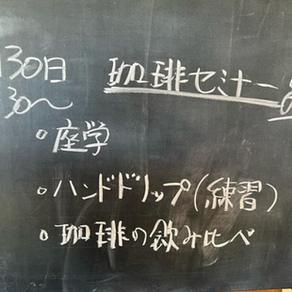 30日 珈琲セミナー
30〜
。座学
。ハンドドリップ(練習)
。珈琲の飲み比べ